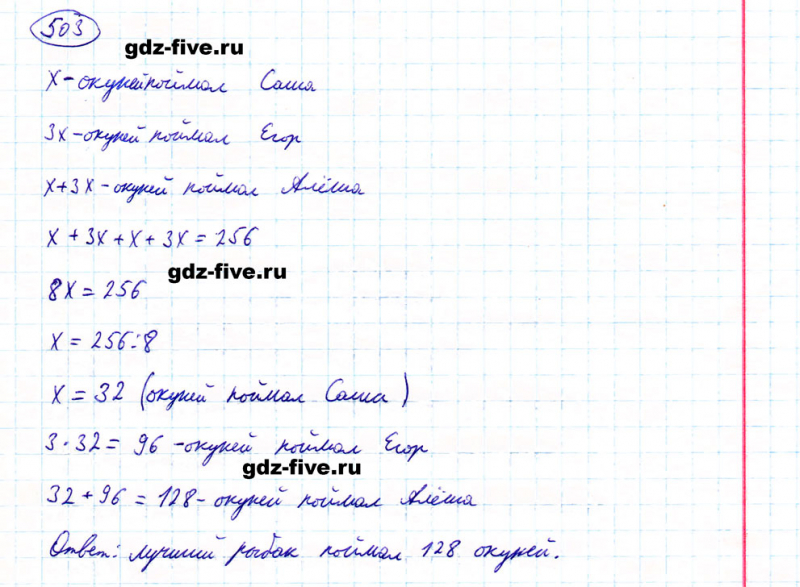 503
gdz-five.ru
x - окуней поймал Саша
3x - окуней поймал Егор
x+3x - окуней поймал Алёша
x + 3x + x + 3x = 256
gdz-five.ru
8x = 256
x = 256:8
x = 32 (окуней поймал Саша)
3 · 32 = 96 - окуней поймал Егор
gdz-five.ru
32 + 96 = 128 - окуней поймал Алёша
Ответ: лучший рыбак поймал 128 окуней.